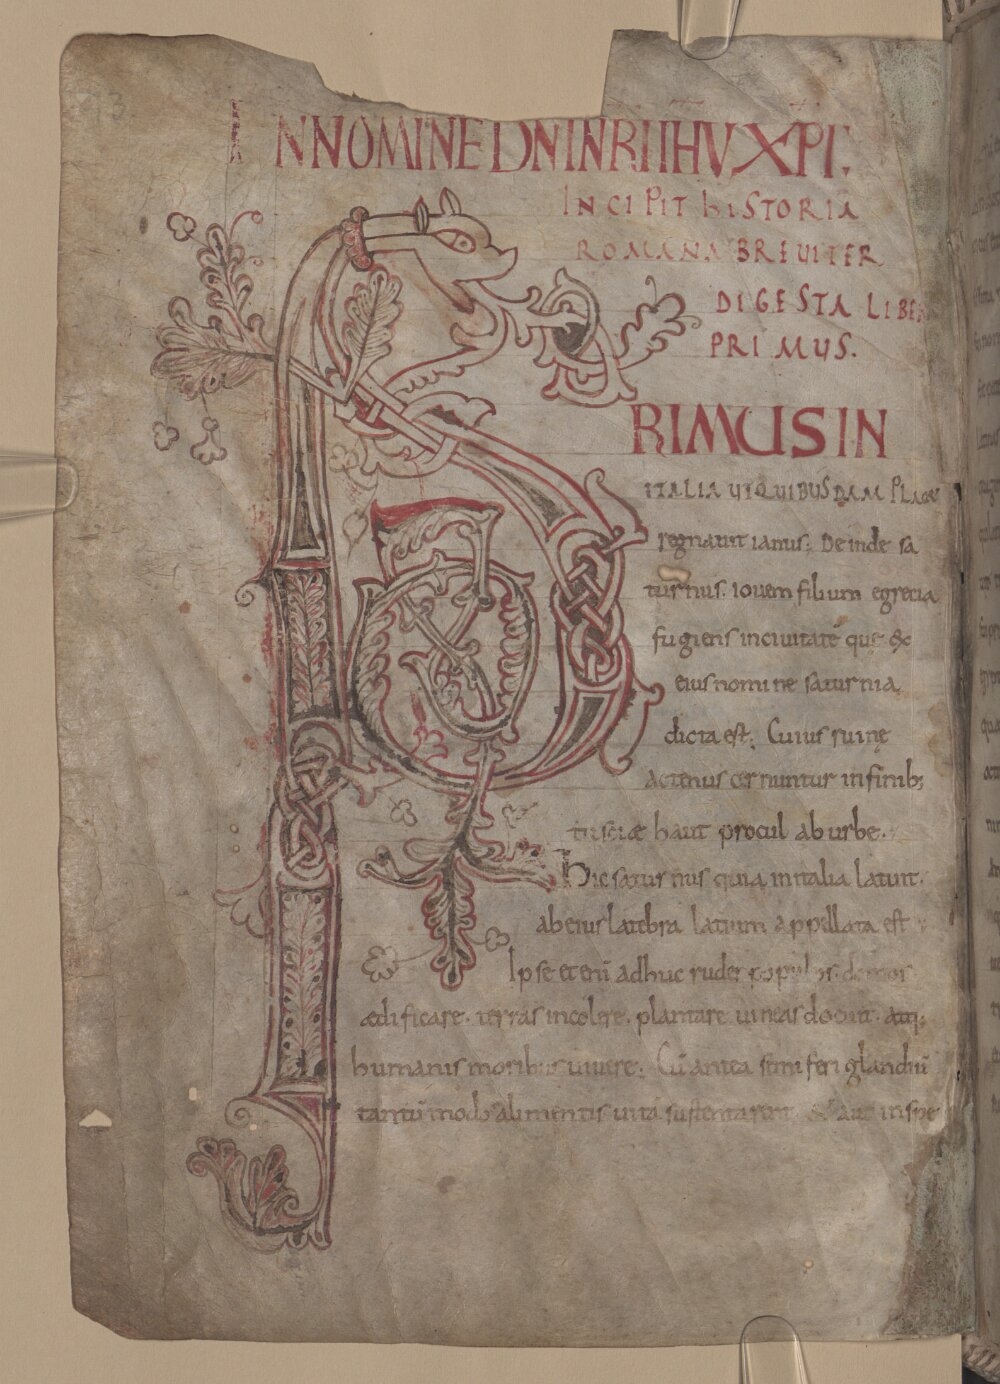 IN NOMINE DNI NRI IHU XPI.
INCIPIT hISTORIA
ROMANA BREVITER
DIGESTA LIBER
PRIMUS.
PRIMUS IN
ITALIA UT QUIBUSDAM PLACET
regnavit ianus; Deinde sa
turnus. iovem filium egrecia
fugiens incivitate que ex
eius nomine saturnia
dicta est; Cuius ruinę
actenus cernuntur infinib;
tusciæ haut procul ab urbe.
Hic saturnus quia initalia latuit.
ab eius latebra latium appellata est
Ipse etenī adhuc rudes populos. domos
ædificare. terras incolere. plantare vineas docuit. atq;
humanis moribus vivere; Cū antea semiferi glandiū
tantūmodo alimentis vitā sustentarent & aut inspe